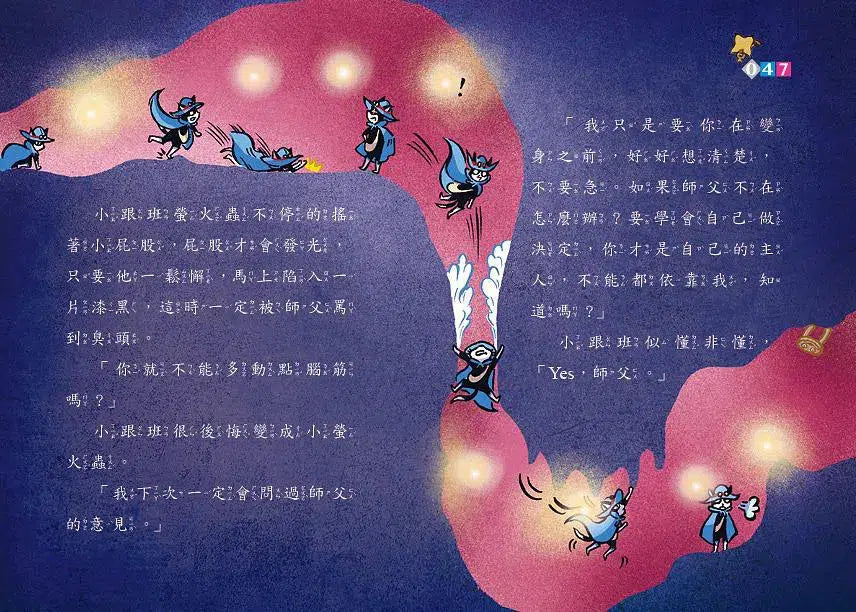 047
小跟班螢火蟲不停的搖
著小屁股，屁股才會發光，
只要他一鬆懈，馬上陷入一
片漆黑，這時一定被師父罵
到臭頭。
「你就不能多動點腦筋
嗎？」
小跟班很後悔變成小螢
火蟲。
「我下次一定會問過師父
的意見。」
「我只是要你在變
身之前，好好想清楚，
不要急。如果師父不在
怎麼辦？要學會自己做
決定，你才是自己的主
人，不能都依靠我，知
道嗎？」
小跟班似懂非懂，
「Yes，師父。」
！